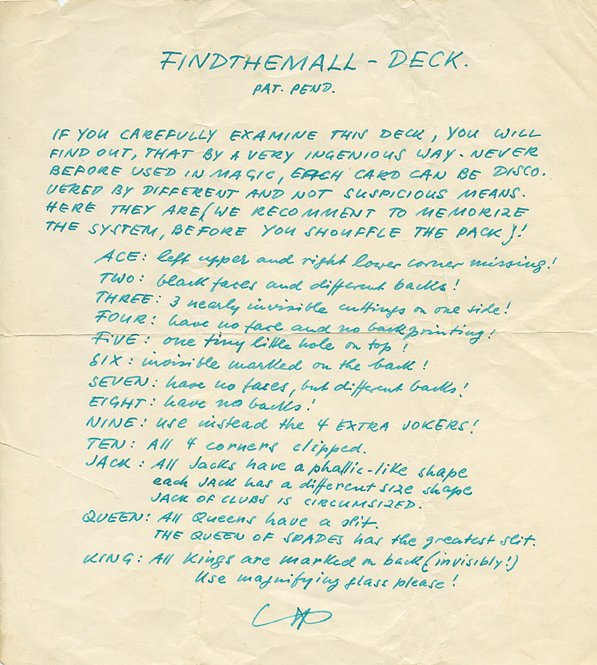 FINDTHEMALL - DECK.
PAT. PEND.
IF YOU CAREFULLY EXAMINE THIS DECK, YOU WILL
FIND OUT, THAT BY A VERY INGENIOUS WAY - NEVER
BEFORE USED IN MAGIC, EACH CARD CAN BE DISCO-
VERED BY DIFFERENT AND NOT SUSPICIOUS MEANS.
HERE THEY ARE (WE RECOMMENT TO MEMORIZE
THE SYSTEM, BEFORE YOU SHOUFFLE THE PACK)!
ACE: left upper and right lower corner missing!
TWO: black faces and different backs!
THREE: 3 nearly invisible cuttings on one side!
FOUR: have no face and no backprinting!
FIVE: one tiny little hole on top!
SIX: invisible marked on the back!
SEVEN: have no faces, but different backs!
EIGHT: have no backs!
NINE: use instead the 4 EXTRA JOKERS!
TEN: All 4 corners clipped.
JACK: All Jacks have a phallic-like shape
each JACK has a different size shape
JACK OF CLUBS IS CIRCUMSIZED.
QUEEN: All Queens have a slit.
THE QUEEN OF SPADES has the greatest slit.
KING: All Kings are marked on back (invisibly!)
Use magnifying glass please!